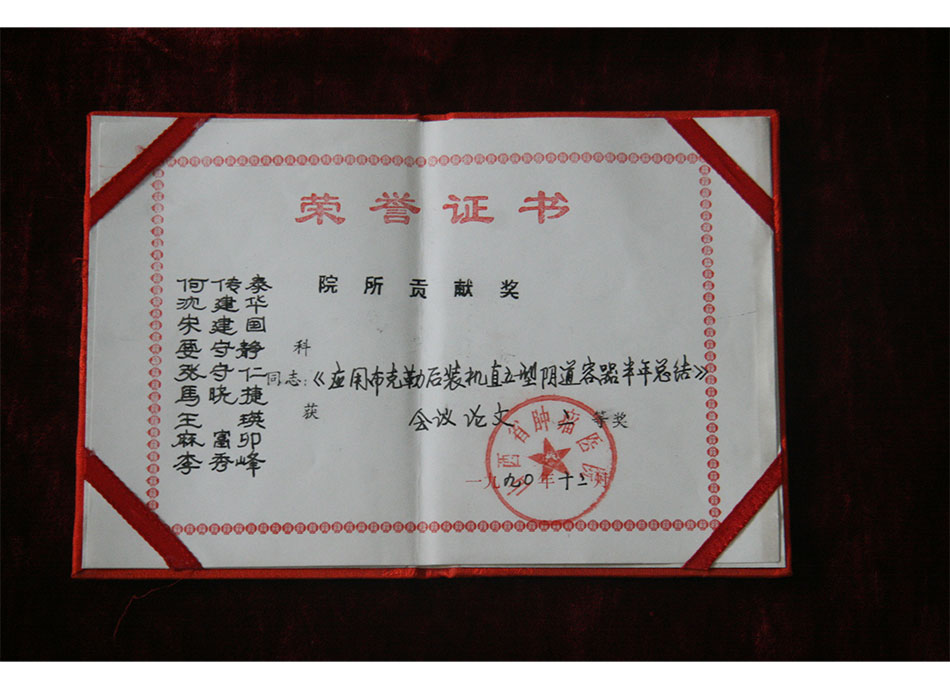 荣誉证书
院所贡献奖
何传泰
沈建华
宋建国
要守静
张守仁
馬晓捷
王瑛
麻富卯
李秀峰
科
同志:《应用布克勒后装机直立型阴道容器半年总结》
获
会议论文 二等奖
西省肿瘤医院
一九九〇年十二月